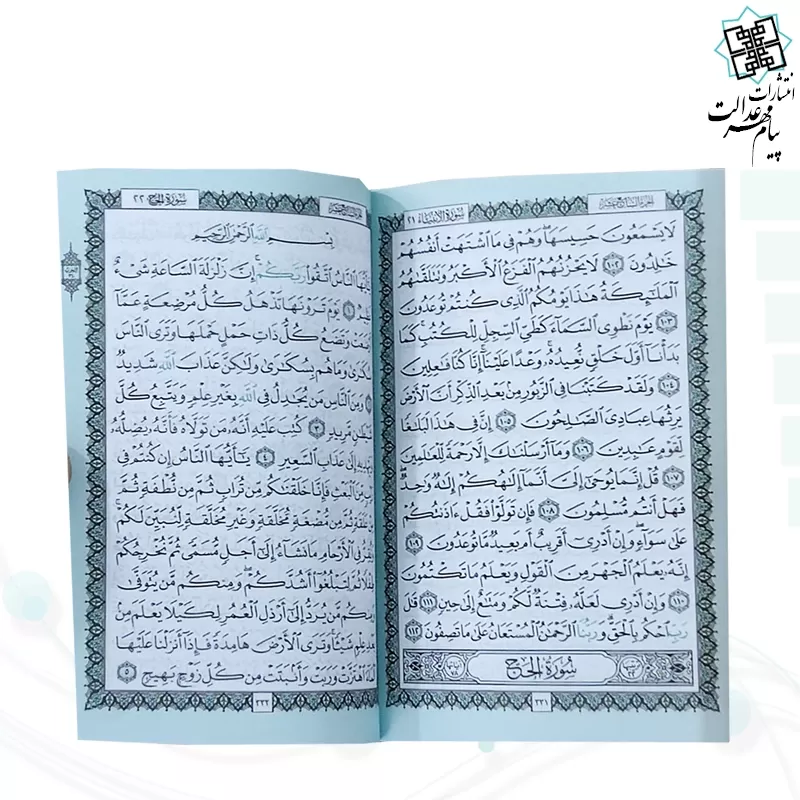 انتشارات
پیام مهر عدالت
سورة الأنبياء ٢١
لَا يَسْمَعُونَ حَسِيسَهَا وَهُمْ فِي مَا اشْتَهَتْ أَنفُسُهُمْ
خَالِدُونَ ١٠٢ لَا يَحْزُنُهُمُ الْفَزَعُ الْأَكْبَرُ وَتَتَلَقَّاهُمُ
الْمَلَائِكَةُ هَذَا يَوْمُكُمُ الَّذِي كُنتُمْ تُوعَدُونَ
١٠٣ يَوْمَ نَطْوِي السَّمَاءَ كَطَيِّ السِّجِلِّ لِلْكُتُبِ كَمَا
بَدَأْنَا أَوَّلَ خَلْقٍ نُّعِيدُهُ وَعْدًا عَلَيْنَا إِنَّا كُنَّا فَاعِلِينَ
١٠٤ وَلَقَدْ كَتَبْنَا فِي الزَّبُورِ مِن بَعْدِ الذِّكْرِ أَنَّ الْأَرْضَ
يَرِثُهَا عِبَادِيَ الصَّالِحُونَ ١٠٥ إِنَّ فِي هَذَا لَبَلَاغًا
لِّقَوْمٍ عَابِدِينَ ١٠٦ وَمَا أَرْسَلْنَاكَ إِلَّا رَحْمَةً لِّلْعَالَمِينَ
١٠٧ قُلْ إِنَّمَا يُوحَى إِلَيَّ أَنَّمَا إِلَهُكُمْ إِلَهٌ وَاحِدٌ
فَهَلْ أَنتُم مُّسْلِمُونَ ١٠٨ فَإِن تَوَلَّوْا فَقُلْ آذَنتُكُمْ
عَلَى سَوَاءٍ وَإِنْ أَدْرِي أَقَرِيبٌ أَم بَعِيدٌ مَّا تُوعَدُونَ ١٠٩
إِنَّهُ يَعْلَمُ الْجَهْرَ مِنَ الْقَوْلِ وَيَعْلَمُ مَا تَكْتُمُونَ
١١٠ وَإِنْ أَدْرِي لَعَلَّهُ فِتْنَةٌ لَّكُمْ وَمَتَاعٌ إِلَى حِينٍ ١١١ قَالَ
رَبِّ احْكُم بِالْحَقِّ وَرَبُّنَا الرَّحْمَنُ الْمُسْتَعَانُ عَلَى مَا تَصِفُونَ ١١٢
سُورَةُ الْحَجِّ
٣٣١
سورة الحج ٢٢
بِسْمِ اللَّهِ الرَّحْمَنِ الرَّحِيمِ
النَّاسُ اتَّقُوا رَبَّكُمْ إِنَّ زَلْزَلَةَ السَّاعَةِ شَيْءٌ
١ يَوْمَ تَرَوْنَهَا تَذْهَلُ كُلُّ مُرْضِعَةٍ عَمَّا
وَتَضَعُ كُلُّ ذَاتِ حَمْلٍ حَمْلَهَا وَتَرَى النَّاسَ
وَمَا هُم بِسُكَارَى وَلَكِنَّ عَذَابَ اللَّهِ شَدِيدٌ
٢ وَمِنَ النَّاسِ مَن يُجَادِلُ فِي اللَّهِ بِغَيْرِ عِلْمٍ وَيَتَّبِعُ كُلَّ
مَّرِيدٍ ٣ كُتِبَ عَلَيْهِ أَنَّهُ مَن تَوَلَّاهُ فَأَنَّهُ يُضِلُّهُ
إِلَى عَذَابِ السَّعِيرِ ٤ يَا أَيُّهَا النَّاسُ إِن كُنتُمْ فِي
مِّنَ الْبَعْثِ فَإِنَّا خَلَقْنَاكُم مِّن تُرَابٍ ثُمَّ مِن نُّطْفَةٍ ثُمَّ
ثُمَّ مِن مُّضْغَةٍ مُّخَلَّقَةٍ وَغَيْرِ مُخَلَّقَةٍ لِّنُبَيِّنَ لَكُمْ
فِي الْأَرْحَامِ مَا نَشَاءُ إِلَى أَجَلٍ مُّسَمًّى ثُمَّ نُخْرِجُكُمْ
لِتَبْلُغُوا أَشُدَّكُمْ وَمِنكُم مَّن يُتَوَفَّى
مَّن يُرَدُّ إِلَى أَرْذَلِ الْعُمُرِ لِكَيْلَا يَعْلَمَ مِن
بَعْدِ عِلْمٍ شَيْئًا وَتَرَى الْأَرْضَ هَامِدَةً فَإِذَا أَنزَلْنَا عَلَيْهَا
الْمَاءَ اهْتَزَّتْ وَرَبَتْ وَأَنبَتَتْ مِن كُلِّ زَوْجٍ بَهِيجٍ ٥
٣٣٢